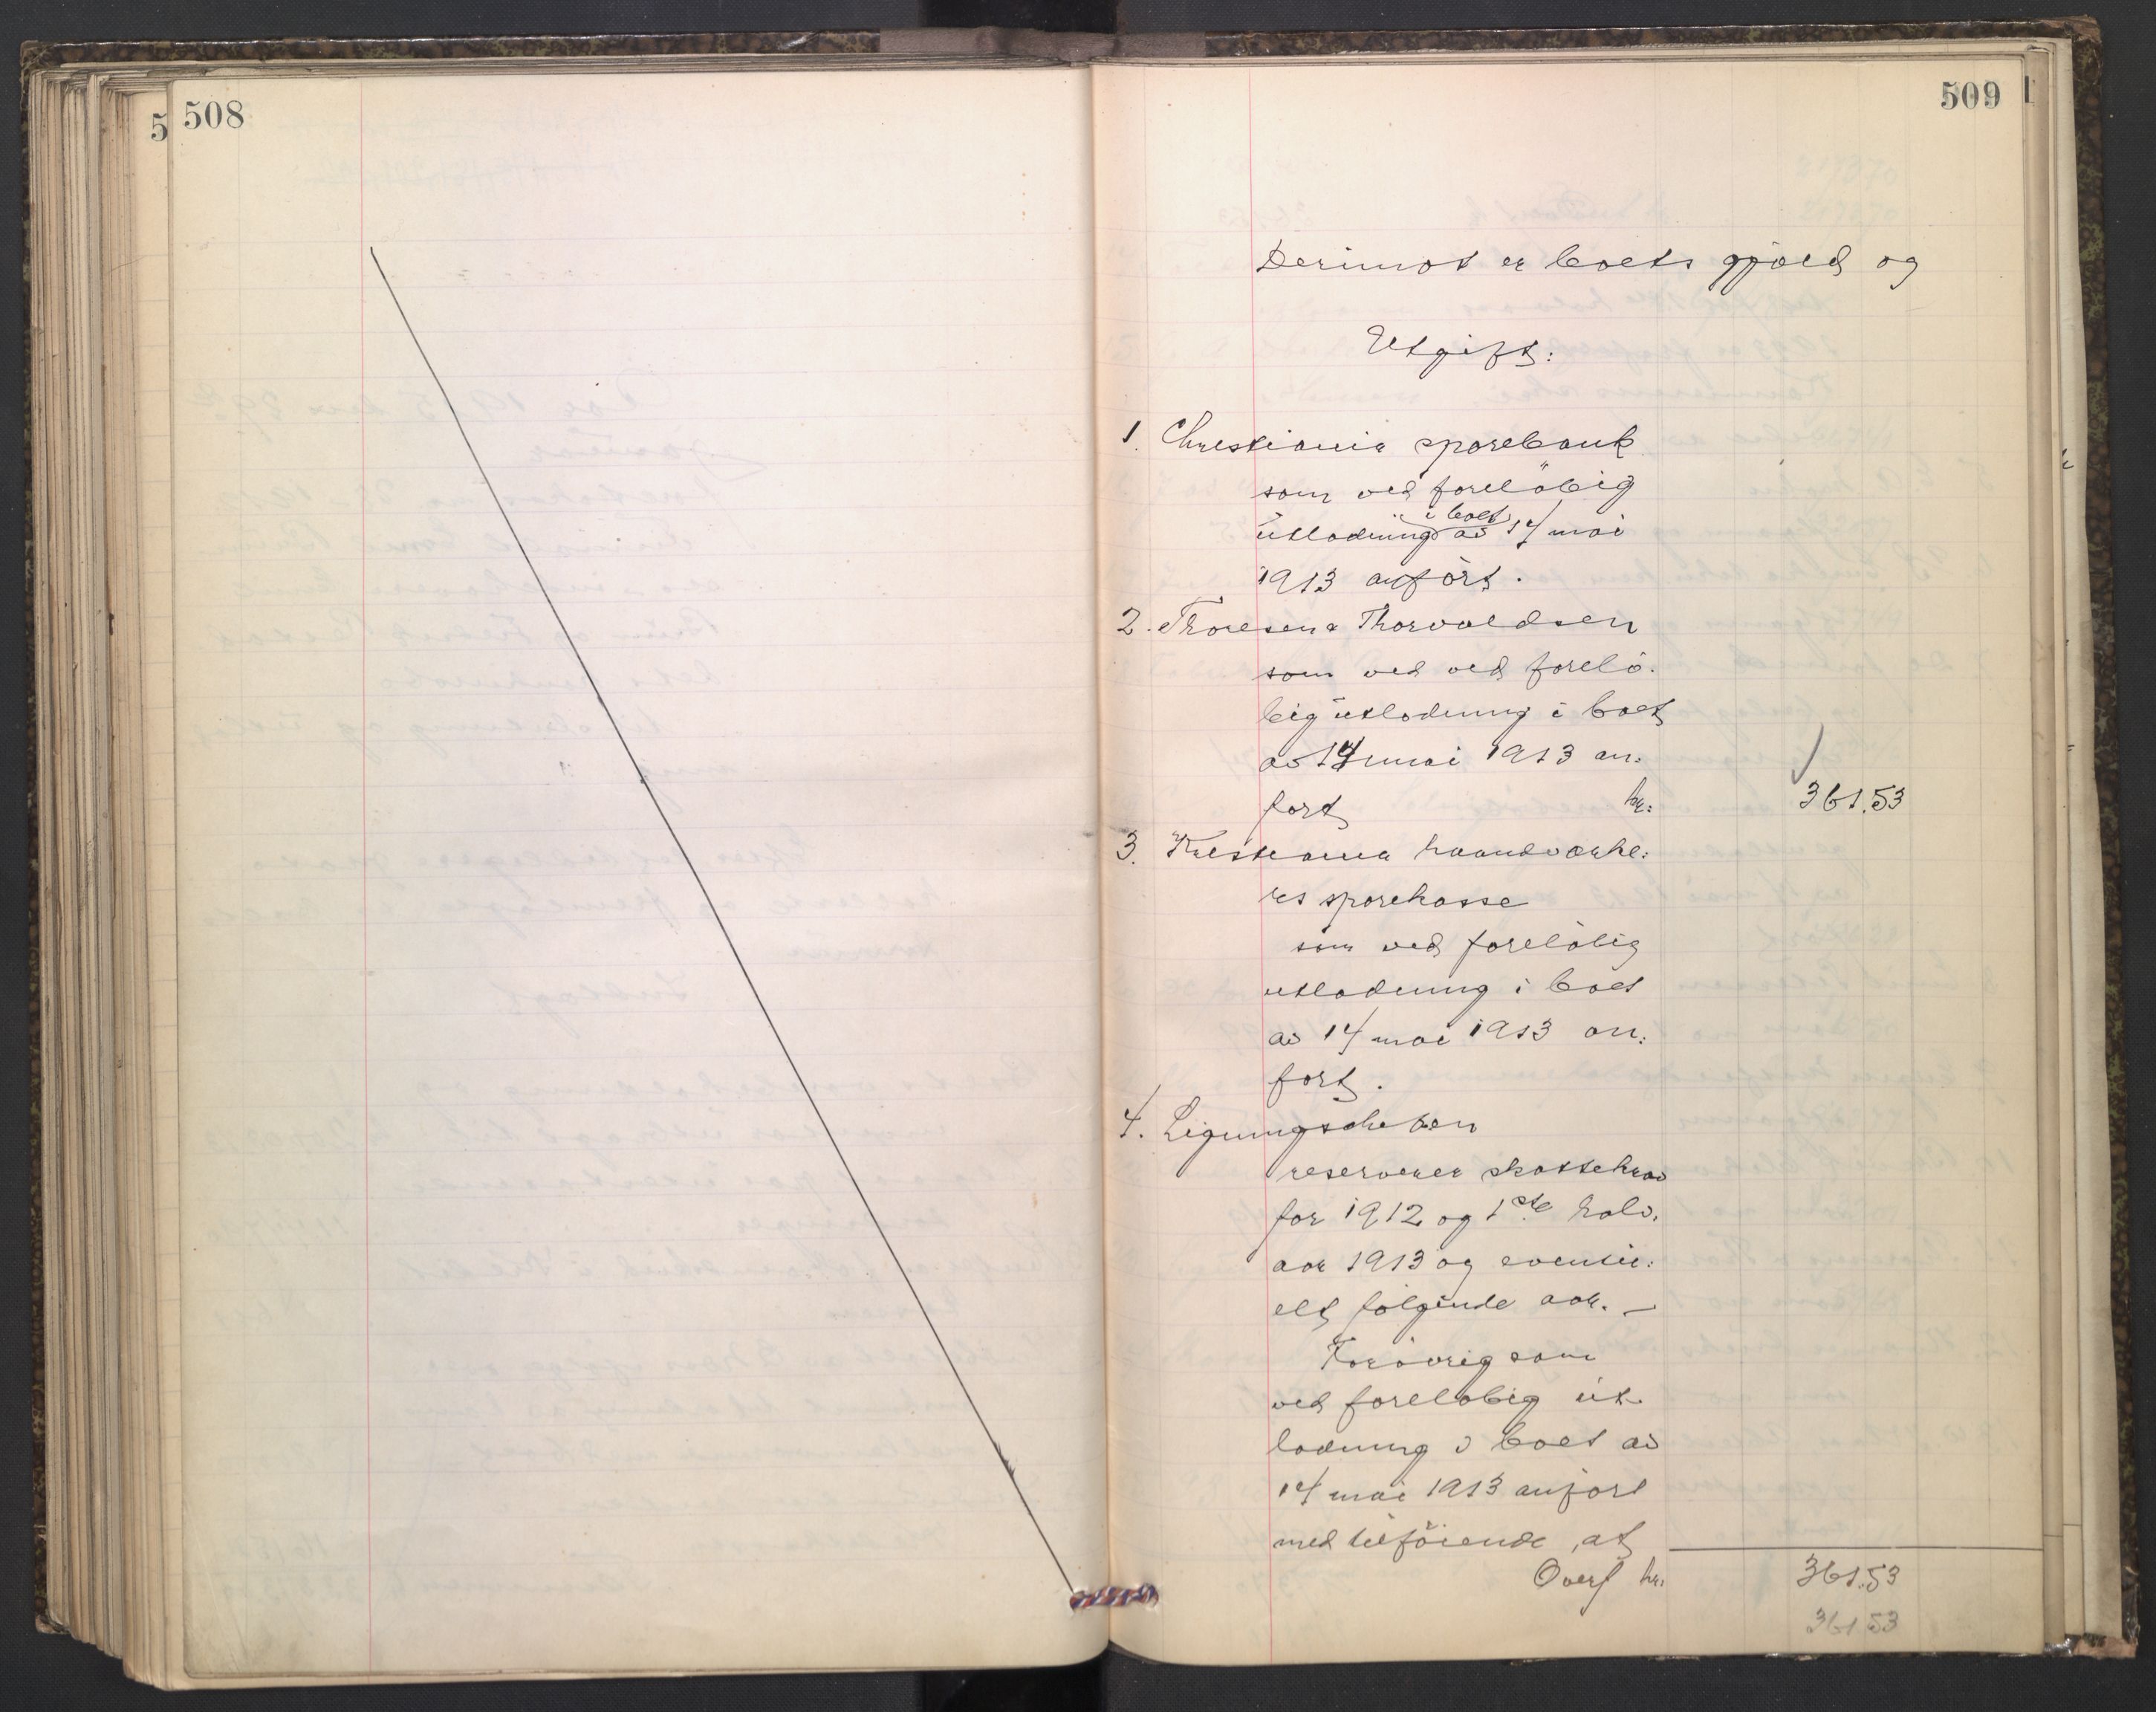 508
5
509
Derimot er boets gjæld og
Utgift:
1. Christiania sparebank
som ved foreløbig
utlodning i boet av 14 mai
1913 anført.
2. Thoresen & Thorvaldsen
som ved ved forelø-
big utlodning i boet
av 14 mai 1913 an-
ført kr: 361.53
3. Kristiania haandværke-
res sparekasse
som ved foreløbig
utlodning i boet
av 14 mai 1913 an-
ført.
4. Ligningschefen
reserverer skattekrav
for 1912 og 1ste halv-
aar 1913 og eventu-
elt følgende aar. —
Forøvrig som
ved foreløbig ut-
lodning i boet av
14 mai 1913 anført
med tilføiende, at
Overf kr: 361.53
361 53